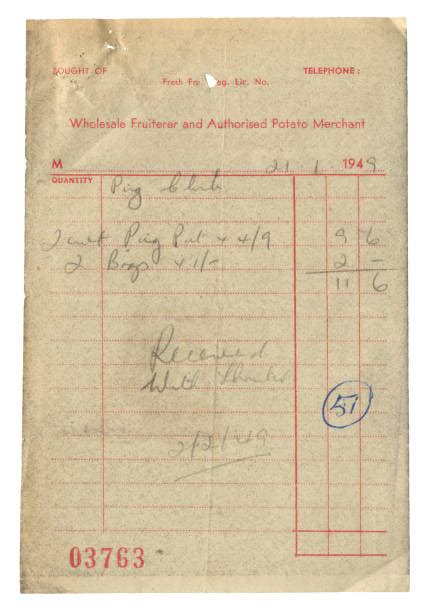 BOUGHT OF TELEPHONE:
Fresh Fru eg. Lic. No.
Wholesale Fruiterer and Authorised Potato Merchant
M 21 1 1949
QUANTITY Pig Club
2 cwt Pig Pot 4/9 9 6
2 Bags 1/- 2 -
11 6
Received
With Thanks
51
2/2/49
03763